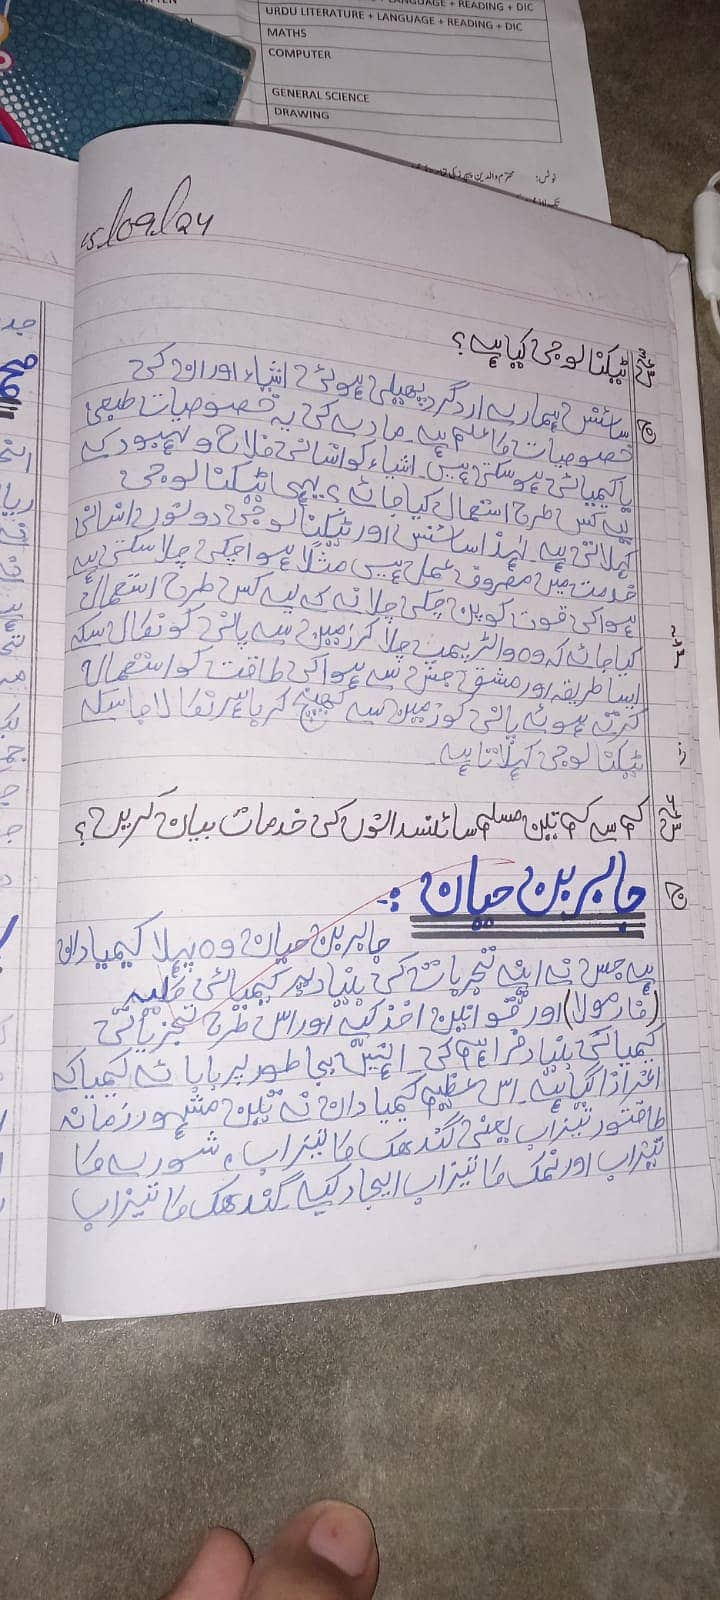 URDU LITERATURE + LANGUAGE + READING + DIC
MATHS
COMPUTER
GENERAL SCIENCE
DRAWING
نوٹس: محترم والدین
15/09/24
ٹیکنالوجی کیا ہے؟
ج سائنس ہمارے اردگرد پھیلی ہوئی اشیاء اور ان کی
خصوصیات کا علم ہے۔ مادے کی یہ خصوصیات طبعی
یا کیمیائی ہو سکتی ہیں۔ اشیاء کو انسانی فلاح و بہبود کے
لیے کس طرح استعمال کیا جائے؟ یہی ٹیکنالوجی
کہلاتی ہے۔ لہٰذا سائنس اور ٹیکنالوجی دونوں انسانی
خدمت میں مصروف عمل ہیں مثلاً ہوا چکی چلا سکتی ہے
ہوا کی قوت کو پن چکی چلانے کے لیے کس طرح استعمال
کیا جائے کہ وہ واٹر پمپ چلا کر زمین سے پانی کو نکال سکے
ایسا طریقہ اور مشق جس سے ہوا کی طاقت کو استعمال
کرتے ہوئے پانی کو زمین سے کھینچ کر باہر نکالا جا سکے
ٹیکنالوجی کہلاتا ہے۔
کم سے کم تین مسلم سائنسدانوں کی خدمات بیان کریں؟
ج جابر بن حیان :-
جابر بن حیان وہ پہلا کیمیا دان
ہے جس نے اپنے تجربات کی بنیاد پر کیمیائی کلیے
(فارمولا) اور قوانین اخذ کیے اور اس طرح تجزیاتی
کیمیا کی بنیاد فراہم کی۔ انہیں بجا طور پر بابائے کیمیا کہ
اعزاز اگیا ہے۔ اس عظیم کیمیا دان نے تین مشہور زمانہ
طاقتور تیزاب یعنی گندھک کا تیزاب، شورے کا
تیزاب اور نمک کا تیزاب ایجاد کیے۔ گندھک کا تیزاب